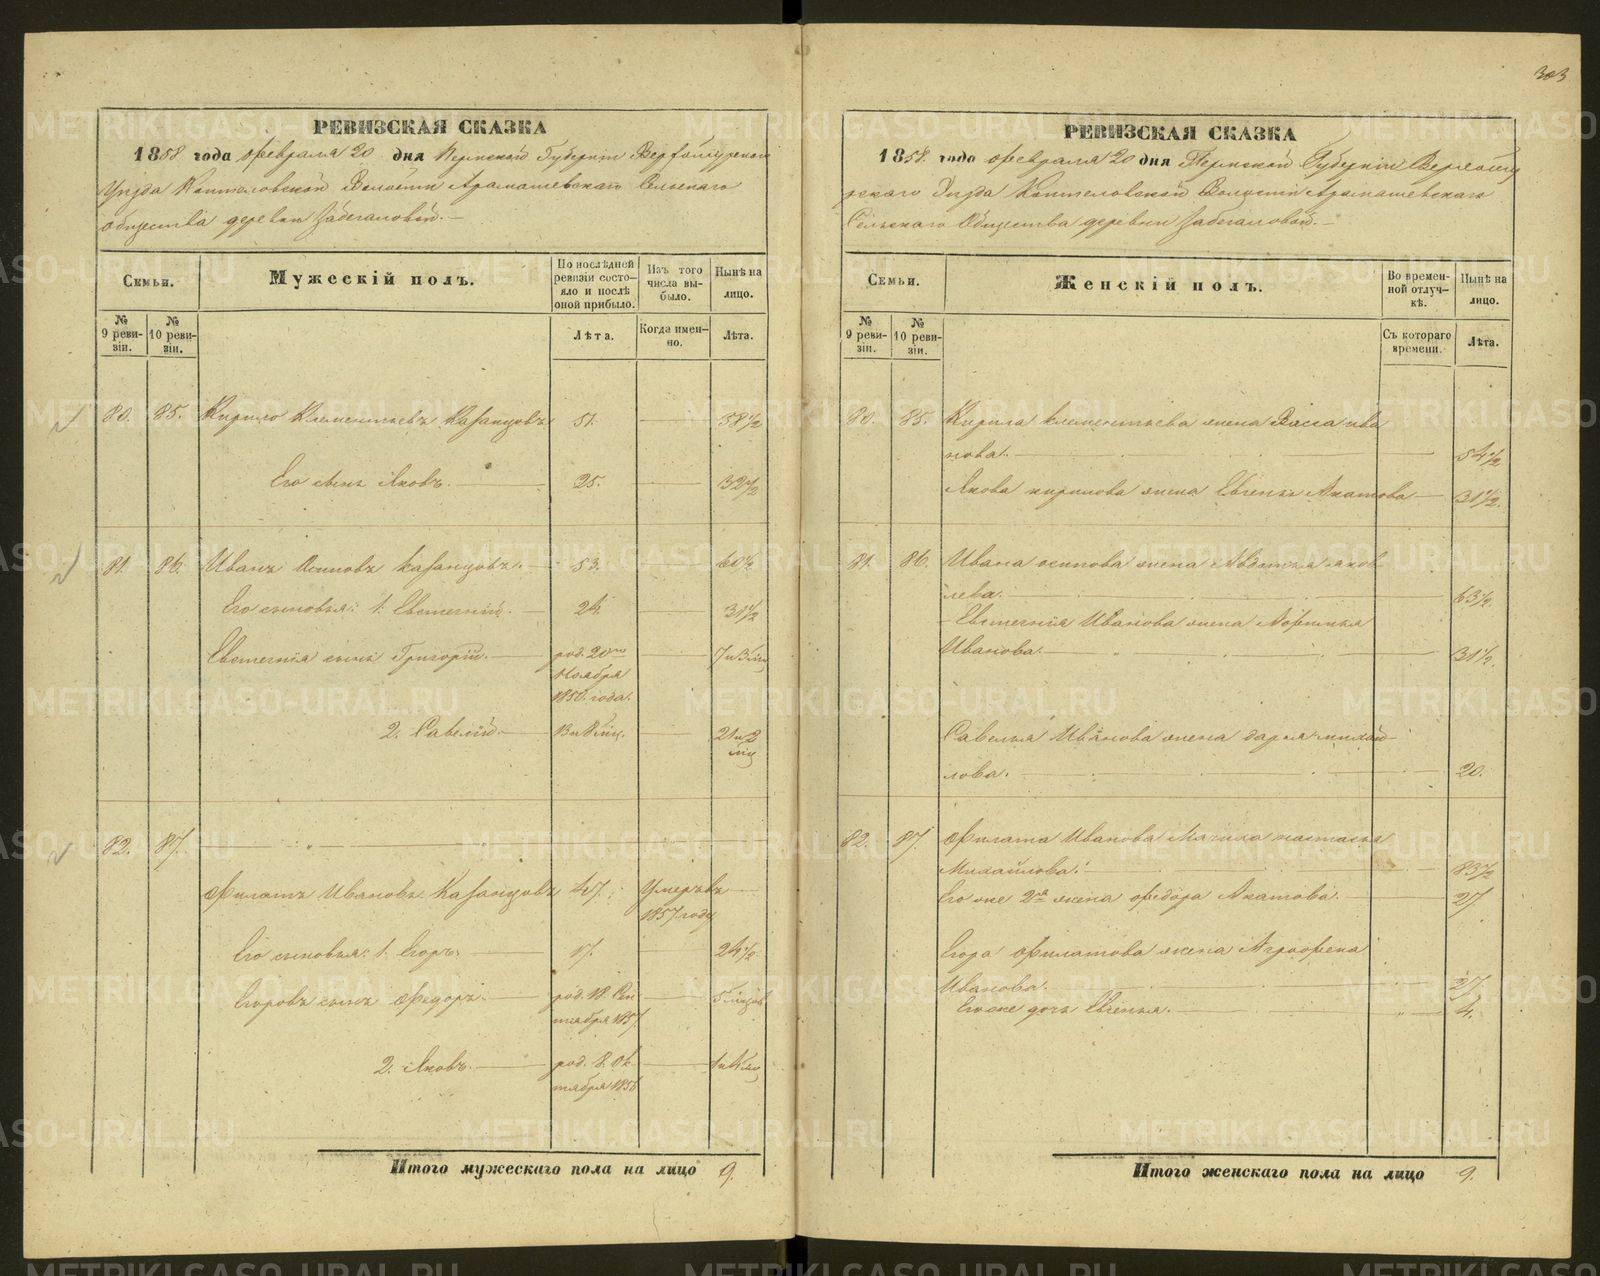 303
РЕВИЗСКАЯ СКАЗКА
1858 года февраля 20 дня Пермской Губернiи Верхотурскаго
Уѣзда Коптеловской Волости Арамашевскаго Сельскаго
общества деревни Забегаловой.—
Семьи.
Мужескiй полъ.
По послѣдней ревизiи состояло и послѣ оной прибыло.
Изъ того числа выбыло.
Нынѣ на лицо.
№ 9 ревизiи.
№ 10 ревизiи.
Лѣта.
Когда именно.
Лѣта.
80. 85. Кирило Клементьевъ Казанцовъ 51. 58 1/2
Его сынъ Яковъ. 25. 32 1/2
81. 86. Иванъ Осиповъ Казанцовъ. 53. 60 1/2
Его сыновья: 1. Евстегнiй. 24. 31 1/2
Евстегнiя сынъ Григорiй. род. 20го 7 и 3 мц
Ноября
1850. года.
2. Савелiй. 13 и 8 мц. 21 и 2
мц
82. 87.
Филатъ Ивановъ Казанцовъ 47. Умеръ въ
1857 году
Его сыновья: 1. Егоръ. 17. 24 1/2
Егоровъ сынъ Федоръ. род. 18. Сен 5 мцов
тября 1857.
2. Яковъ. род. 8. Ок 1 и 4 мц
тября 1856
Итого мужескаго пола на лицо 9.
РЕВИЗСКАЯ СКАЗКА
1858. года февраля 20 дня Пермской Губернiи Верхоту
рскаго Уѣзда Коптеловской Волости Арамашевскаго
Сельскаго Общества деревни Забегаловой.—
Семьи.
Женскiй полъ.
Во временной отлучкѣ.
Нынѣ на лицо.
№ 9 ревизiи.
№ 10 ревизiи.
Съ котораго времени.
Лѣта.
80. 85. Кирила Клементьева жена Васса Ива
нова. 54 1/2
Якова Кирилова жена Евгенья Ипатова 31 1/2.
81. 86. Ивана Осипова жена Авдотья Яков
лева. 63 1/2.
Евстегнiя Иванова жена Афимья
Иванова. 31 1/2.
Савелья Иванова жена Дарья Михай
лова. 20.
82. 87. Филата Иванова Мачиха Настасья
Михайлова. 83 1/2
Его же 2я жена Федора Ипатова. 27
Егора Филатова жена Аграфена
Иванова. 27.
Его же дочь Евгенья. 4.
Итого женскаго пола на лицо 9.
METRIKI.GASO-URAL.RU